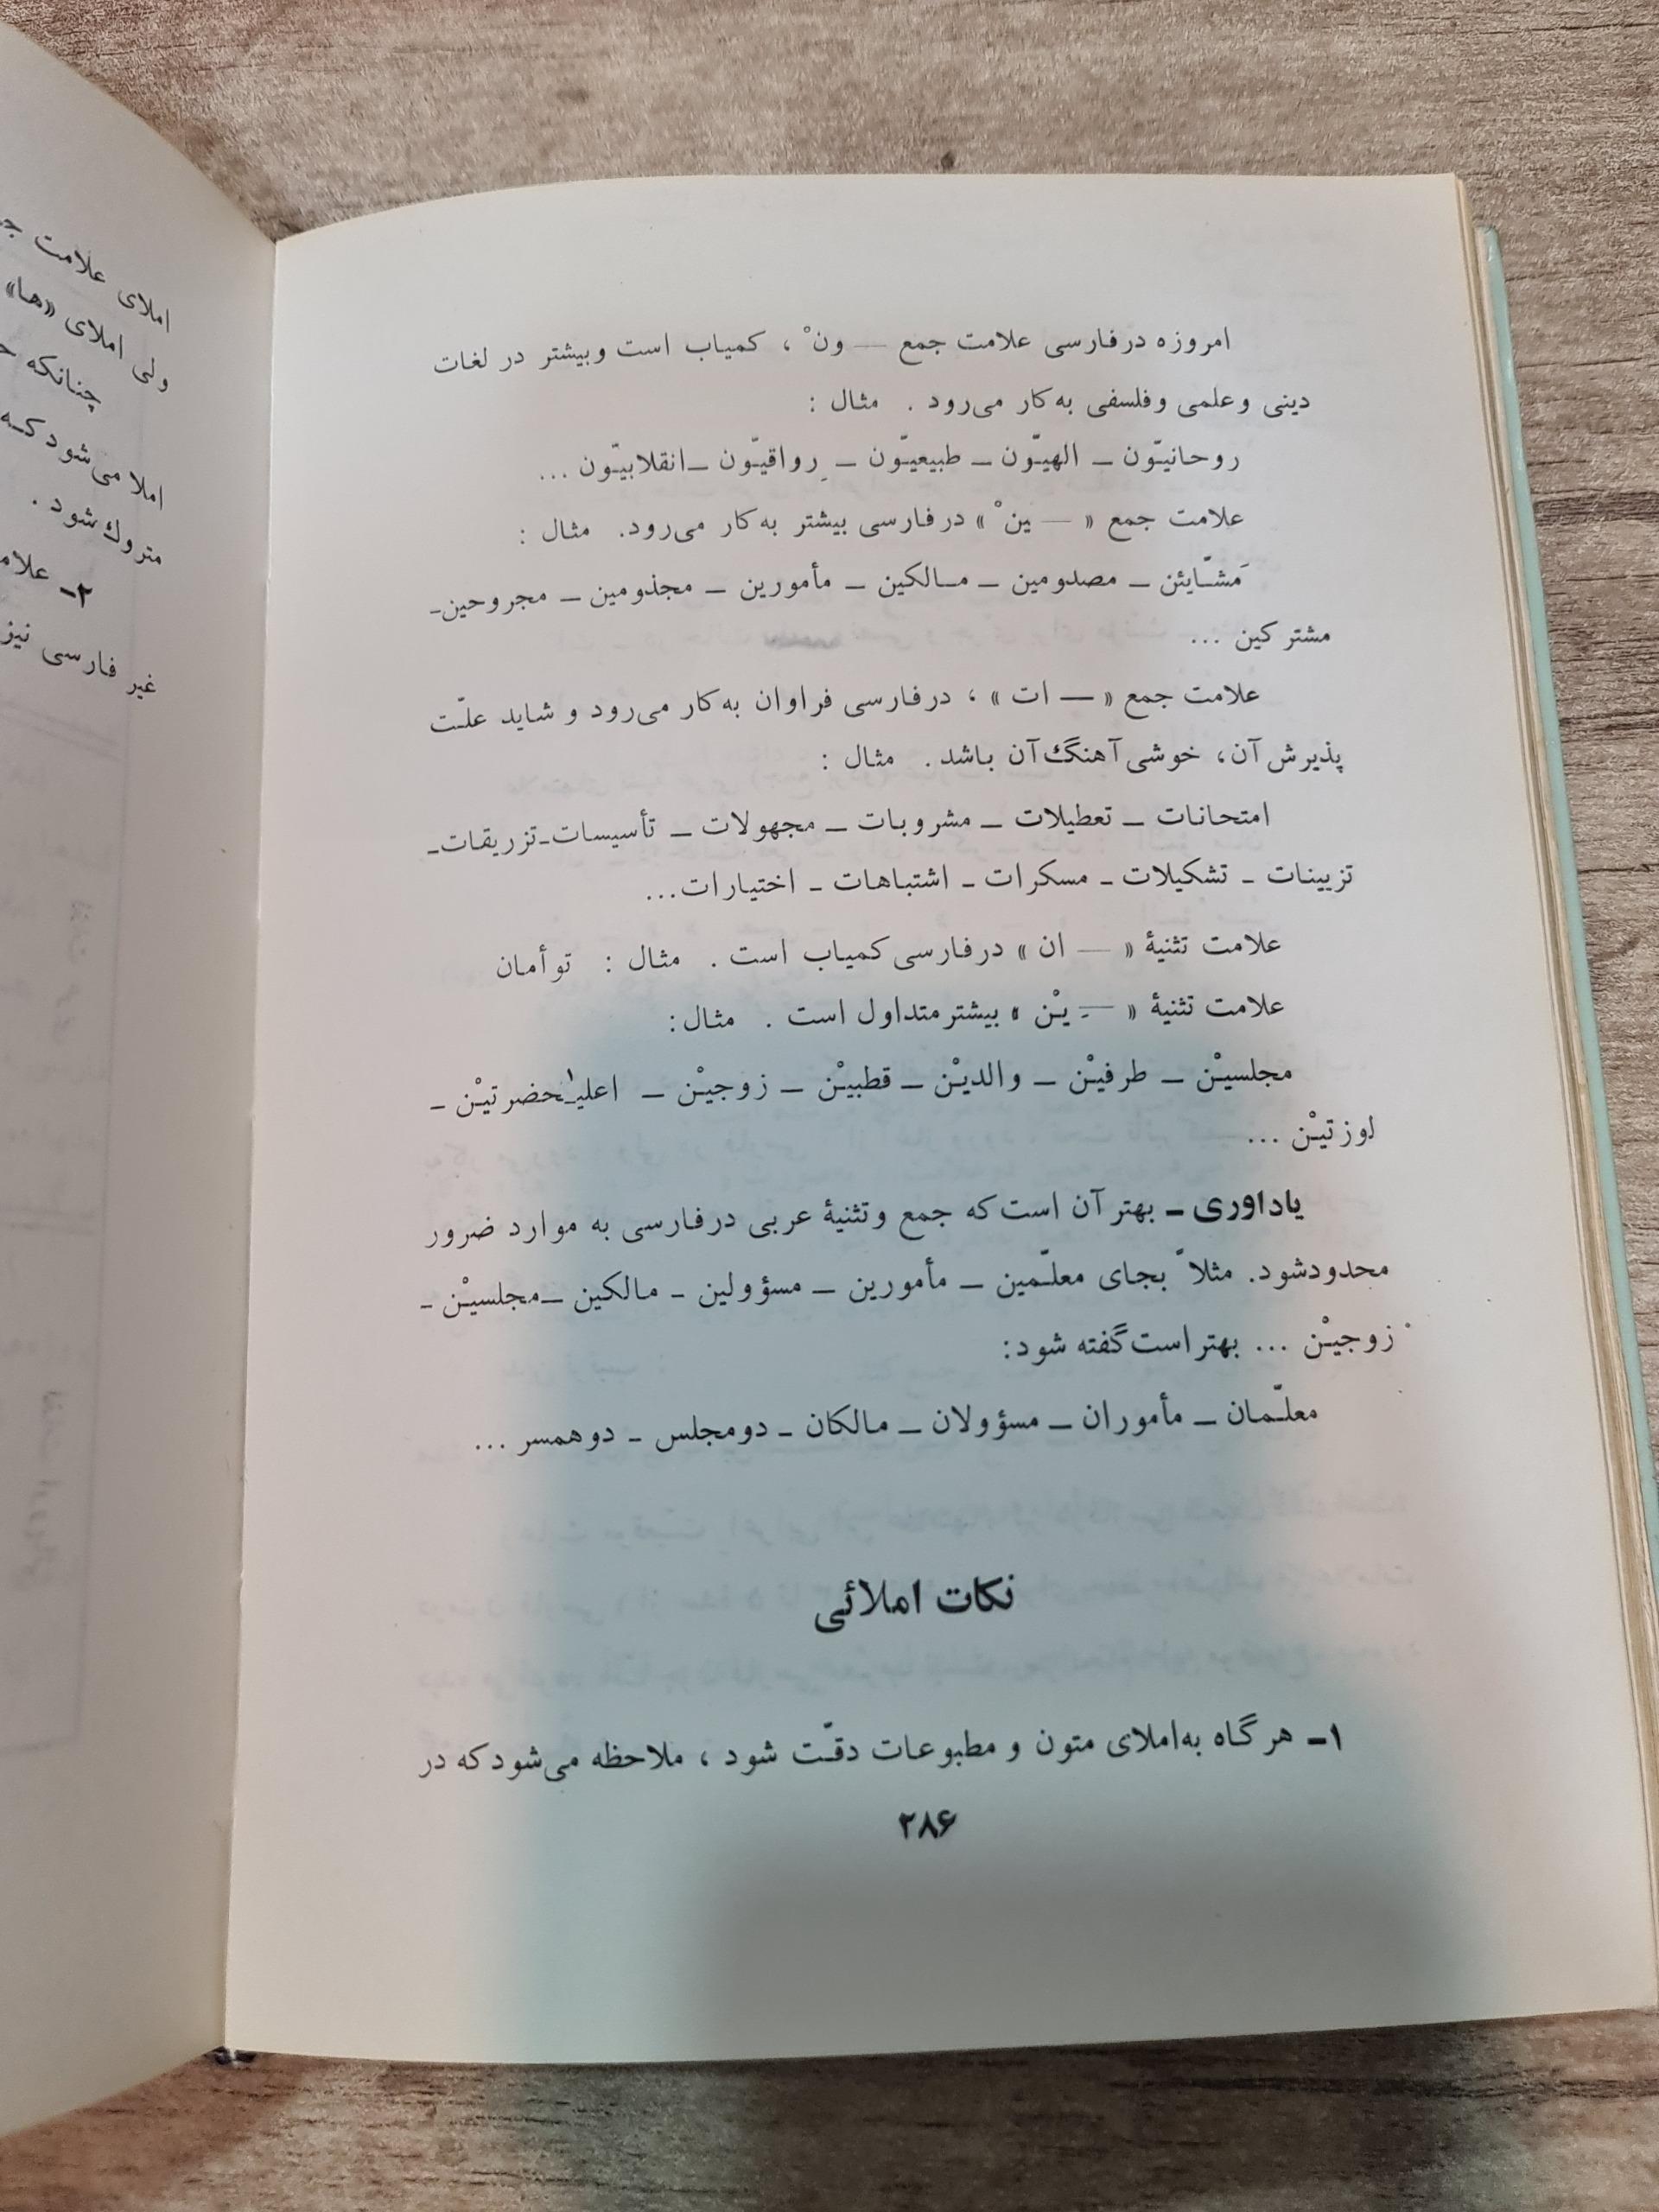 امروزه درفارسی علامت جمع — ونْ ، کمیاب است وبیشتر در لغات
دینی وعلمی وفلسفی به‌کار می‌رود . مثال :
روحانیّون ـ الهیّون ـ طبیعیّون ـ رِواقیّون ـ انقلابیّون ...
علامت جمع « — ینْ » درفارسی بیشتر به‌کار می‌رود. مثال :
مَشّایئن ـ مصدومین ـ مالکین ـ مأمورین ـ مجذومین ـ مجروحین ـ
مشترکین ...
علامت جمع « — ات » ، درفارسی فراوان به‌کار می‌رود و شاید علّت
پذیرش آن، خوشی آهنگ آن باشد . مثال :
امتحانات ـ تعطیلات ـ مشروبات ـ مجهولات ـ تأسیسات ـ تزریقات ـ
تزیینات ـ تشکیلات ـ مسکرات ـ اشتباهات ـ اختیارات...
علامت تثنیهٔ « — ان » درفارسی کمیاب است . مثال : توأمان
علامت تثنیهٔ « — یْن » بیشتر متداول است . مثال :
مجلسیْن ـ طرفیْن ـ والدیْن ـ قطبیْن ـ زوجیْن ـ اعلیٰحضرتیْن ـ
لوزتیْن ...
یاداوری ـ بهتر آن است که جمع وتثنیهٔ عربی درفارسی به موارد ضرور
محدودشود. مثلاً بجای معلّمین ـ مأمورین ـ مسؤولین ـ مالکین ـ مجلسیْن ـ
زوجیْن ... بهتر است گفته شود:
معلّمان ـ مأموران ـ مسؤولان ـ مالکان ـ دومجلس ـ دوهمسر ...
نکات املائی
۱ـ هرگاه به‌املای متون و مطبوعات دقّت شود ، ملاحظه می‌شودکه در
۲۸۶
املای علامت
ولی املای «ها»
چنانکه
املا می‌شودکه
متروك شود .
۲ـ
غیر فارسی نیز